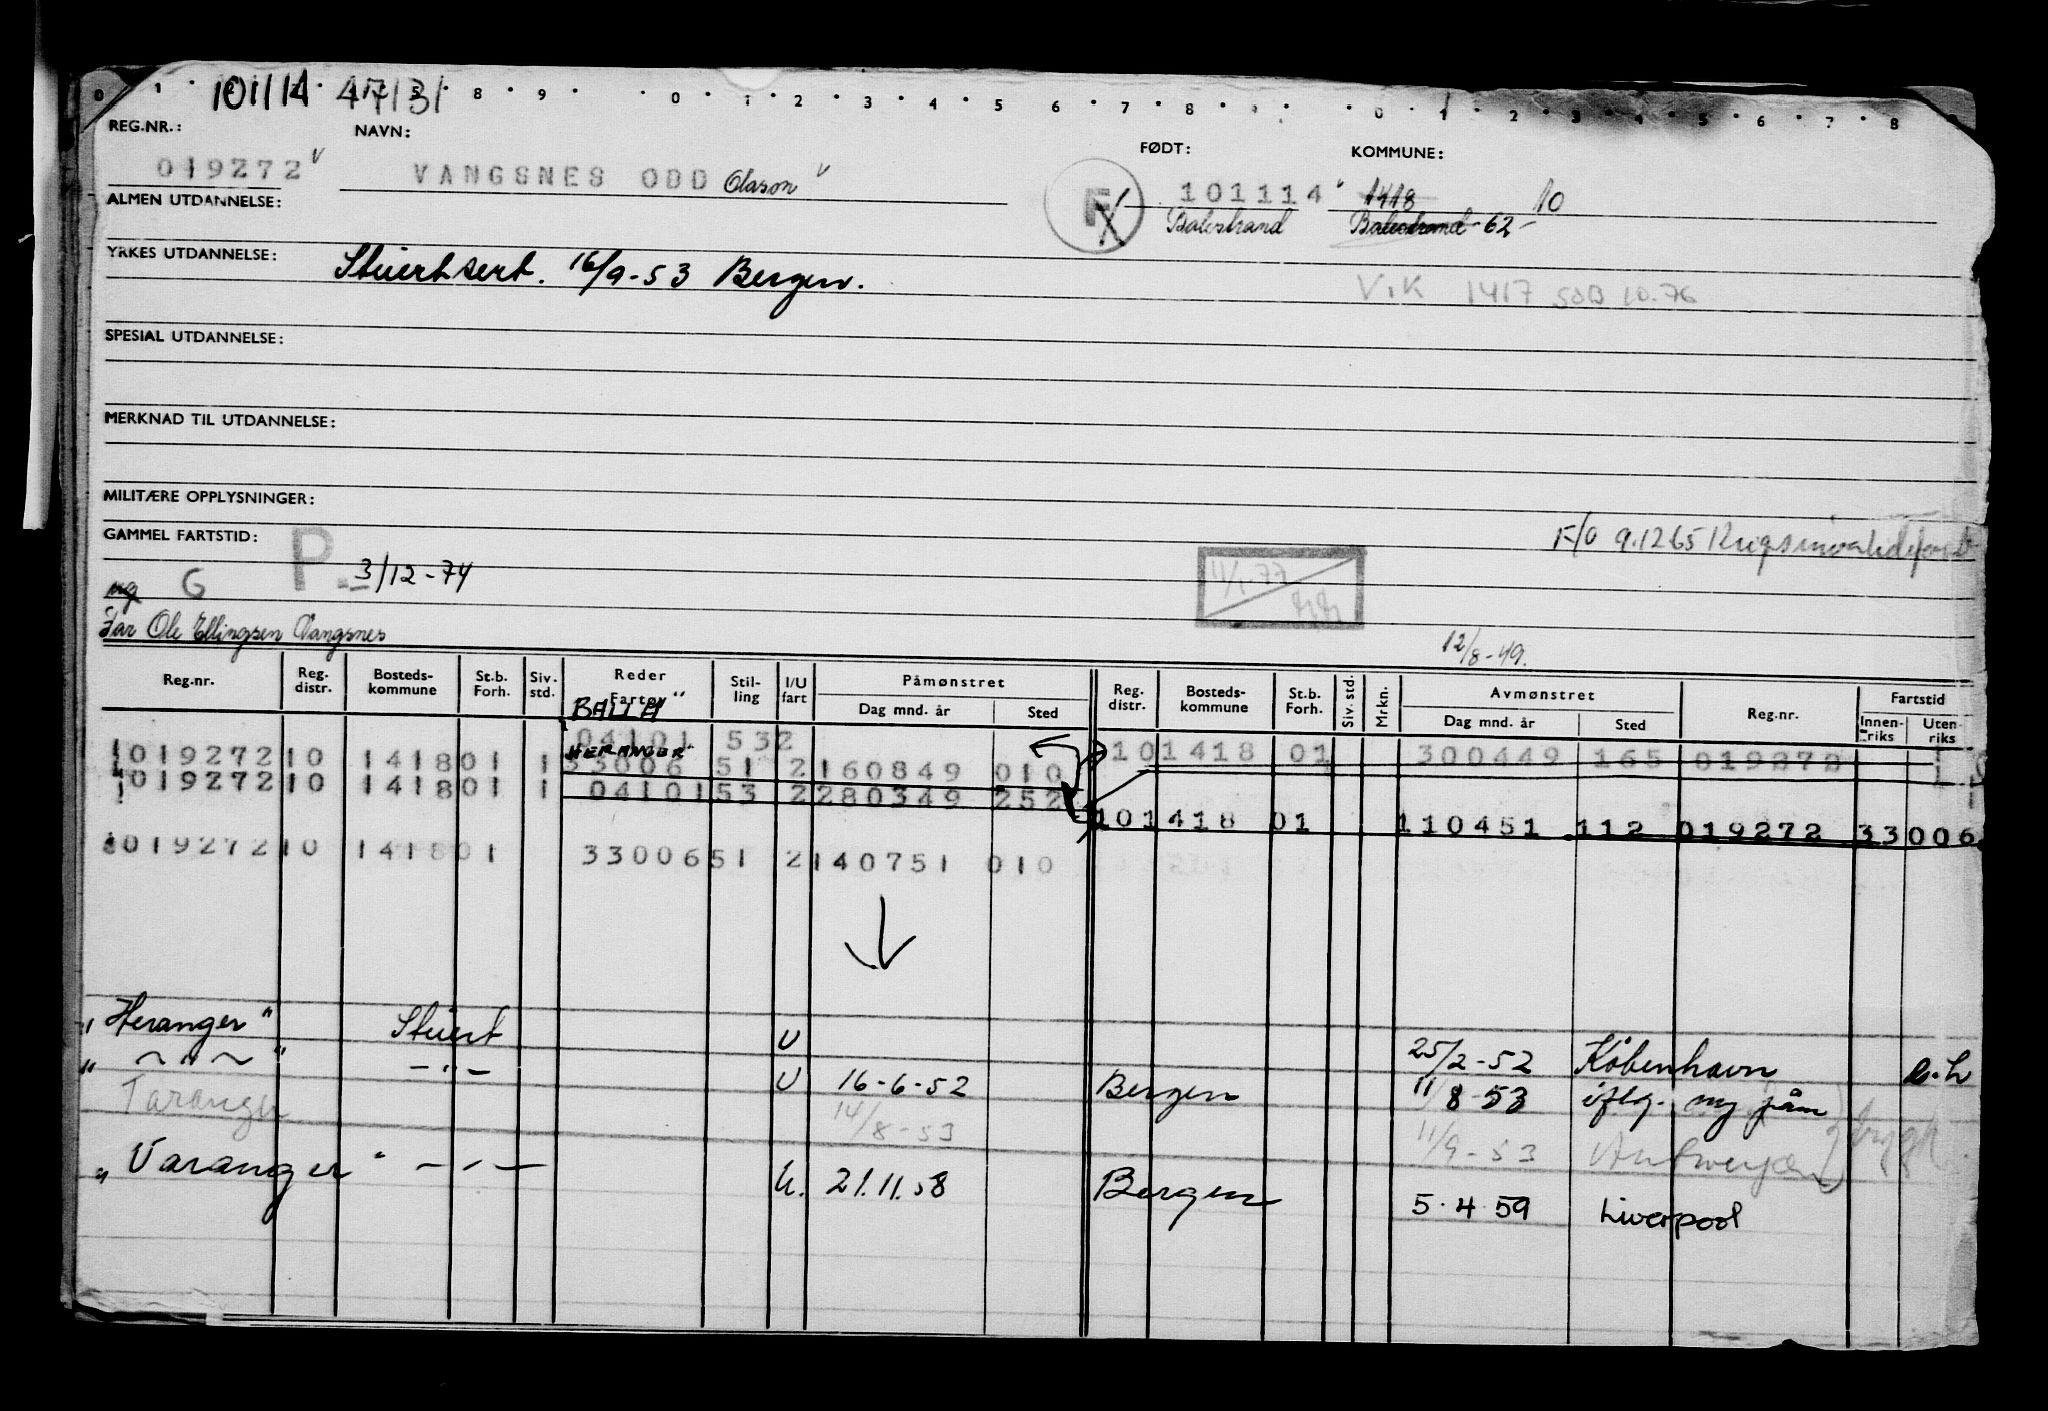 101114 47131
0 1 2 8 9 0 1 2 3 4 5 6 7 8 9 0 1 2 3 4 5 6 7 8
REG.NR.: NAVN: FØDT: KOMMUNE:
019272 v VANGSNES ODD Olason v F 101114 v 1418 10
ALMEN UTDANNELSE: Balestrand Balestrand -62-
YRKES UTDANNELSE: Stuertsert. 16/9-53 Bergen.
Vik 1417 SOB 10.76
SPESIAL UTDANNELSE:
MERKNAD TIL UTDANNELSE:
MILITÆRE OPPLYSNINGER:
GAMMEL FARTSTID: P. F/O 9.1265
G 3/12-74 11/1-77
Far Ole Ellingsen Vangsnes
12/8-49.
Reg.nr. Reg. distr. Bosteds-kommune St.b. Forh. Siv. std. Reder Fartøy Stil-ling I/U fart Påmønstret Dag mnd. år Sted Reg. distr. Bosteds-kommune St.b. Forh. Siv. std. Mrkn. Avmønstret Dag mnd. år Sted Reg.nr. Fartstid Innen-riks Uten-riks
"BALLA"
04101 532 10 1418 01 300449 165 019272
"HERANGER"
1019272 10 1418 01 1 33006 51 2 160849 010
1019272 10 1418 01 1 04101 53 2 280349 252
10 1418 01 110451 112 019272 33006
019272 10 1418 01 33006 51 2 140751 010
"Heranger" Stuert U 25/2-52 København
" ~ " ~ " -"- U 16-6-52 Bergen 11/8-53 iflg. ny påm
Taranger 14/8-53 11/9-53 Antwerpen
"Varanger" -"- U. 21.11.58 Bergen 5.4 59 Liverpool